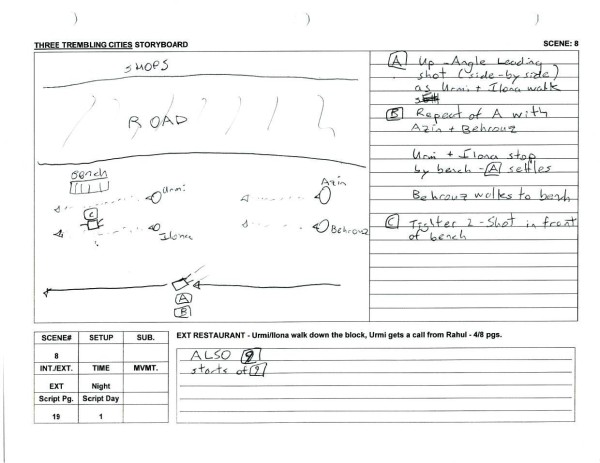 THREE TREMBLING CITIES STORYBOARD
SCENE: 8
SHOPS
ROAD
Bench
Urmi
Azin
C
Ilona
Behrouz
A
B
A Up-Angle Leading
shot (side-by-side)
as Urmi + Ilona walk
B Repeat of A with
Azin + Behrouz
Urmi + Ilona stop
by bench - A settles
Behrouz walks to bench
C Tighter 2-Shot in front
of bench
SCENE# SETUP SUB.
8
INT./EXT. TIME MVMT.
EXT Night
Script Pg. Script Day
19 1
EXT RESTAURANT - Urmi/Ilona walk down the block, Urmi gets a call from Rahul - 4/8 pgs.
ALSO 9
starts of 9